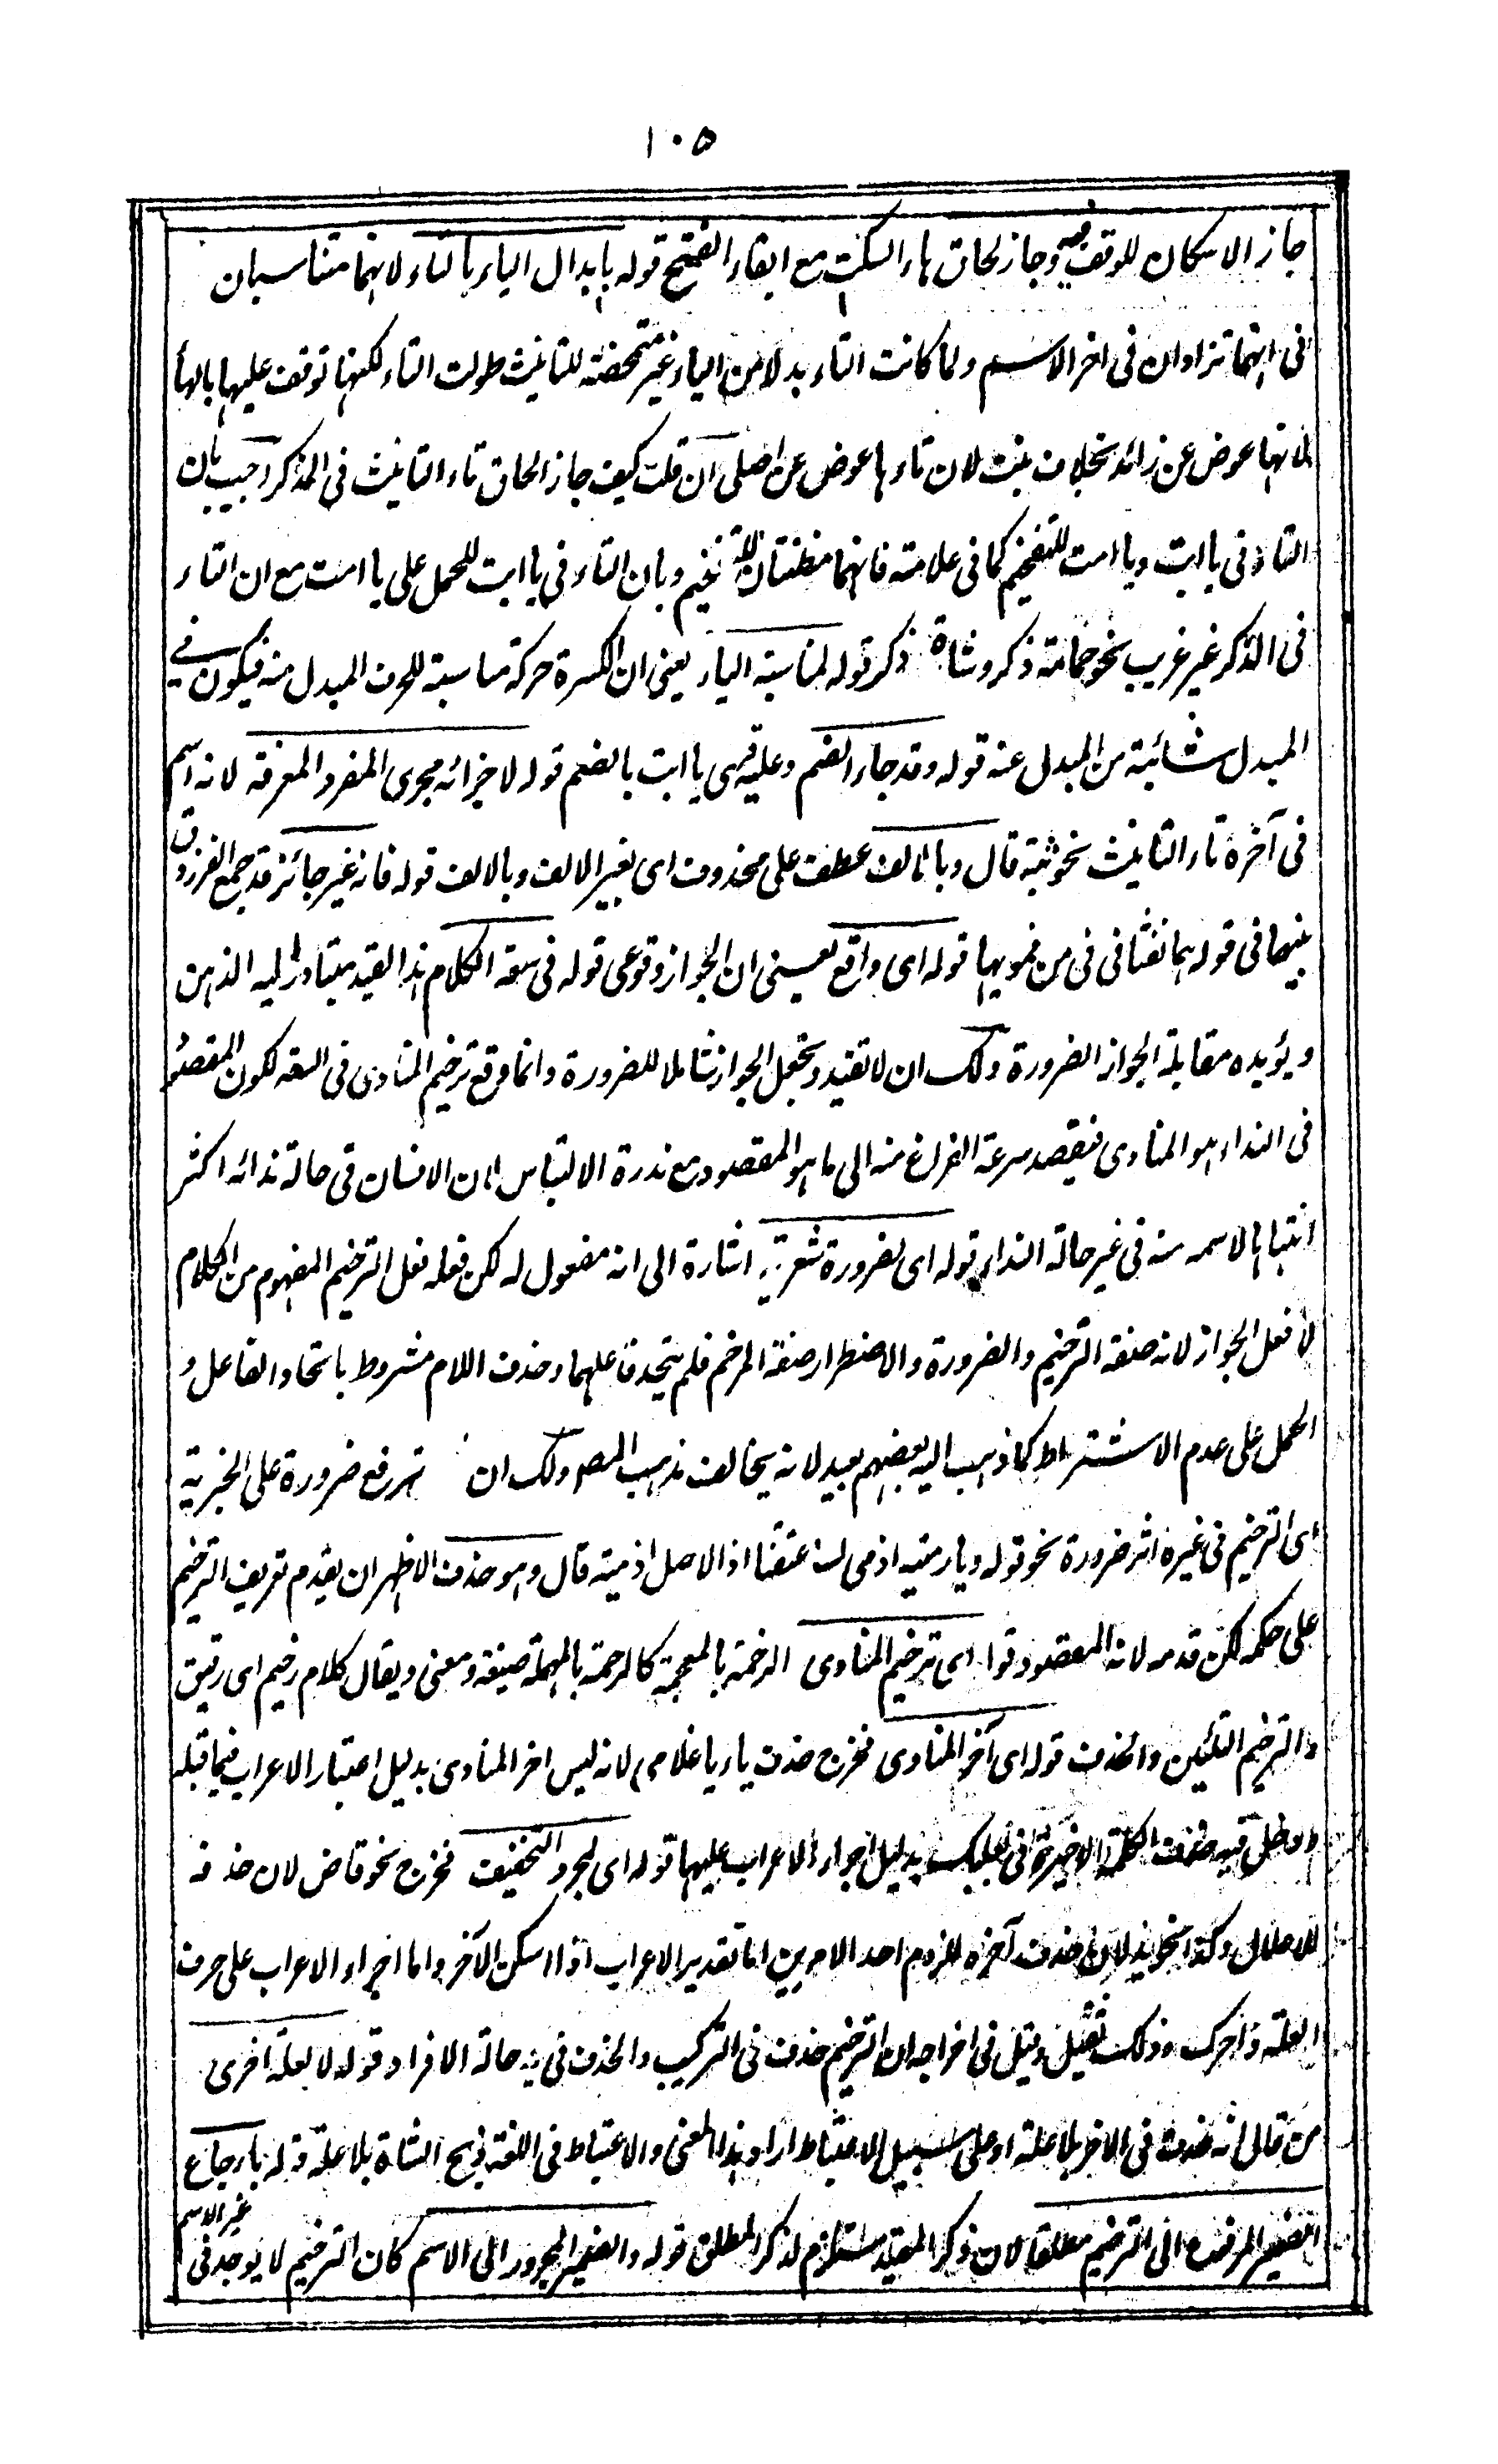 ١٠٥
جاز الاسكان للوقف وجاز لحاق هاء السكت مع ابقاء الفتح قوله بابدال الياء بالتاء لانهما متناسبان
فى انهما تزادان فى اخر الاسم ولما كانت التاء بدلا من الياء غير متمحضة للتانيث طولت التاء لكنها توقف عليها بالهاء
لانها عوض عن زائد بخلاف بنت لان تاءها عوض عن اصلى ان قلت كيف جاز الحاق تاء التانيث فى المذكر اجيب بان
التاء فى يا ابت ويا امت للتفخيم كما فى علامة فانهما مظنتان للتفخيم وبان التاء فى يا ابت للحمل على يا امت مع ان التاء
فى المذكر غير غريب نحو حمامة ذكر وشاة ذكر قوله لمناسبة الياء يعنى ان الكسرة حركة مناسبة للحرف المبدل منه فيكون فى
المبدل شائبة من المبدل عنه قوله وقد جاء الضم وعليه قرى يا ابت بالضم قوله لاجرائه مجرى المفرد المعرفة لانه اسم
فى آخره تاء التانيث نحو ثبة قال وبالالف عطف على محذوف اى بغير الالف وبالالف قوله فانه غير جائز قد جمع الفرزدق
بينهما فى قوله هما نفثا فى فى من فمويهما قوله اى واقع يعنى ان الجواز وقوعى قوله فى سعة الكلام هذا القيد يتبادر اليه الذهن
ويؤيده مقابلة الجواز الضرورة ولك ان لا تقيد وتجعل الجواز شاملا للضرورة وانما وقع ترخيم المنادى فى السعة لكون المقصود
فى النداء هو المنادى فيقصد سرعة الفراغ منه الى ما هو المقصود مع ندرة الالتباس لان الانسان فى حالة ندائه اكثر
انتباها لاسمه منه فى غير حالة النداء قوله اى لضرورة شعرية اشارة الى انه مفعول له لكن فعله فعل الترخيم المفهوم من الكلام
لا فعل الجواز لانه صفة الترخيم والضرورة والاضطرار صفة المرخم فلم يتحد فاعلهما وحذف اللام مشروط باتحاد الفاعل و
الحمل على عدم الاشتراط كما ذهب اليه بعضهم بعيد لانه يخالف مذهب المص ولك ان ترفع ضرورة على الخبرية
اى الترخيم فى غيره اثر ضرورة نحو قوله ديار مية اذ مى تساعفنا اذ الاصل اذ مية قال وهو حذف الاظهر ان يقدم تعريف الترخيم
على حكمه لكن قدمه لانه المقصود قوله اى ترخيم المنادى الرخمة بالمعجمة كالرحمة بالمهملة صيغة ومعنى ويقال كلام رخيم اى رقيق
والترخيم التليين والحذف قوله اى آخر المنادى فخرج حذف ياء يا غلامى لانه ليس اخر المنادى بدليل اعتبار الاعراب فيما قبله
ودخل فيه حذف الكلمة الاخيرة فى بعلبك بدليل اجراء الاعراب عليها قوله اى لمجرد التخفيف فخرج نحو قاض لان حذفه
للاعلال وكذا نحو يد لان حذف آخره للزوم احد الامرين اما تقدير الاعراب اذا اسكن الآخر واما اجراء الاعراب على حرف
العلة اذا حرك وذلك ثقيل وقيل فى اخراجه ان الترخيم حذف فى التركيب والحذف فى يد حالة الافراد قوله لا لعلة اخرى
من قال انه حذف فى الاخر بلا علة او على سبيل الاعتباط اراد هذا المعنى والاعتباط فى اللغة ذبح الشاة بلا علة قوله بارجاع
الضمير المرفوع الى الترخيم مطلقا لان ذكر المقيد مستلزم لذكر المطلق قوله والضمير المجرور الى الاسم كان الترخيم لا يوجد فى
غير الاسم